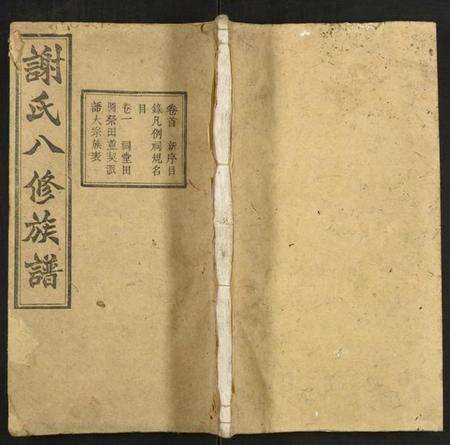 謝氏八修族譜
卷首　新序目
錄凡例祠規名
目
卷一　祠堂田
圖祭田墓契派
語大宗族表